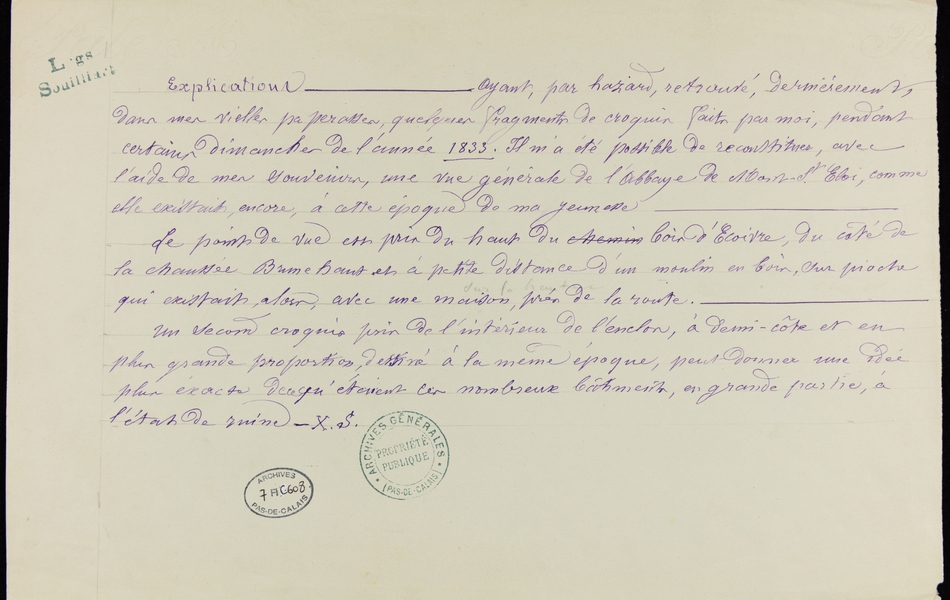 Legs
Souilliart
Explications ———— Ayant, par hazard, retrouvé, dernièrement,
dans mes vielles paperasses, quelques fragments de croquis faits par moi, pendant
certains dimanches de l'année 1833. Il m'a été possible de reconstituer, avec
l'aide de mes souvenirs, une vue générale de l'Abbaye de Mont-St Eloi, comme
elle existait, encore, à cette époque de ma jeunesse ————
Le point de vue est pris du haut du chemin bois d'Ecoivre, du côté de
la chaussée Brunehaut et à petite distance d'un moulin en bois, sur pioche
sur la hauteur
qui existait, alors, avec une maison, près de la route. ————
Un second croquis pris de l'intérieur de l'enclos, à demi-côte et en
plus grande proportion, dessiné à la même époque, peut donner une idée
plus exacte de ce qu'étaient ces nombreux bâtiments, en grande partie, à
l'état de ruine — X. S.
ARCHIVES GÉNÉRALES
PROPRIÉTÉ
PUBLIQUE
(PAS-DE-CALAIS)
ARCHIVES
7 FI C608
PAS-DE-CALAIS